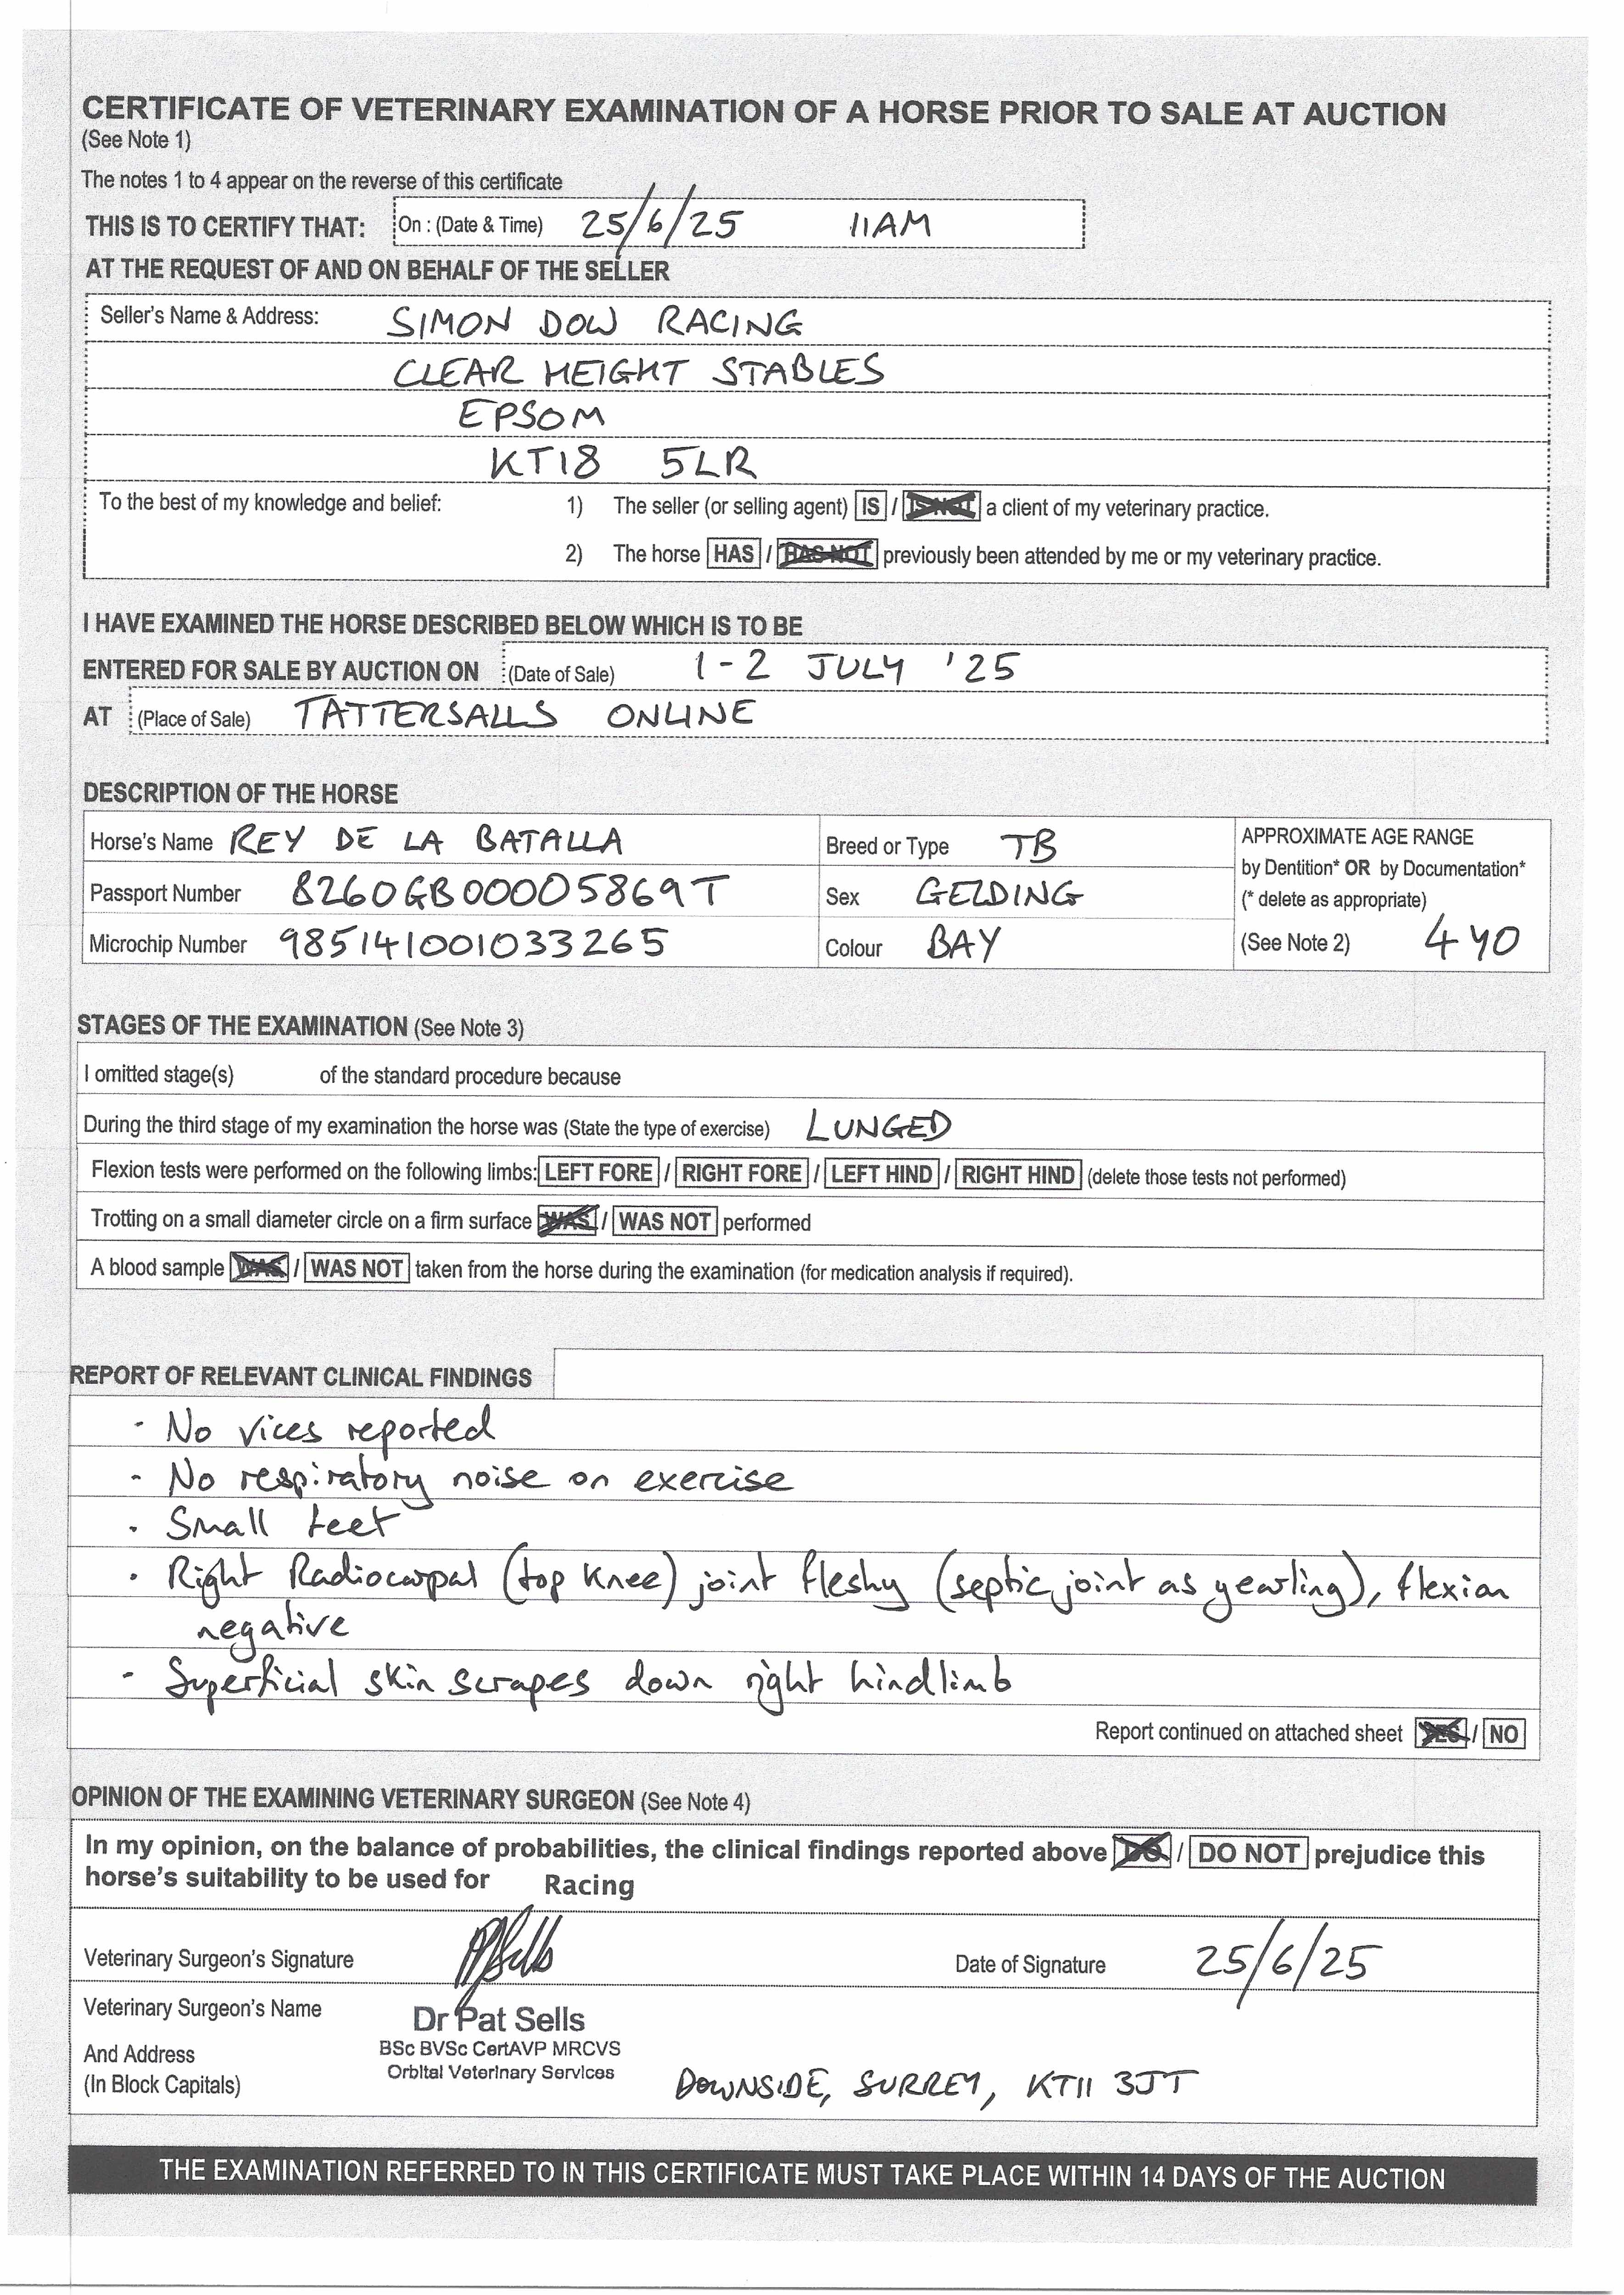 CERTIFICATE OF VETERINARY EXAMINATION OF A HORSE PRIOR TO SALE AT AUCTION
(See Note 1)
The notes 1 to 4 appear on the reverse of this certificate
THIS IS TO CERTIFY THAT: On : (Date & Time) 25/6/25 11AM
AT THE REQUEST OF AND ON BEHALF OF THE SELLER
Seller's Name & Address: SIMON DOW RACING
CLEAR HEIGHT STABLES
EPSOM
KT18 5LR
To the best of my knowledge and belief: 1) The seller (or selling agent) IS / IS NOT a client of my veterinary practice.
2) The horse HAS / HAS NOT previously been attended by me or my veterinary practice.
I HAVE EXAMINED THE HORSE DESCRIBED BELOW WHICH IS TO BE
ENTERED FOR SALE BY AUCTION ON (Date of Sale) 1-2 JULY '25
AT (Place of Sale) TATTERSALLS ONLINE
DESCRIPTION OF THE HORSE
Horse's Name REY DE LA BATALLA Breed or Type TB APPROXIMATE AGE RANGE
by Dentition* OR by Documentation*
Passport Number 8260GB00005869T Sex GELDING (* delete as appropriate)
Microchip Number 985141001033265 Colour BAY (See Note 2) 4 YO
STAGES OF THE EXAMINATION (See Note 3)
I omitted stage(s) of the standard procedure because
During the third stage of my examination the horse was (State the type of exercise) LUNGED
Flexion tests were performed on the following limbs: LEFT FORE / RIGHT FORE / LEFT HIND / RIGHT HIND (delete those tests not performed)
Trotting on a small diameter circle on a firm surface WAS / WAS NOT performed
A blood sample WAS / WAS NOT taken from the horse during the examination (for medication analysis if required).
REPORT OF RELEVANT CLINICAL FINDINGS
- No vices reported
- No respiratory noise on exercise
- Small feet
- Right Radiocarpal (top knee) joint fleshy (septic joint as yearling), flexion
negative
- Superficial skin scrapes down right hindlimb
Report continued on attached sheet YES / NO
OPINION OF THE EXAMINING VETERINARY SURGEON (See Note 4)
In my opinion, on the balance of probabilities, the clinical findings reported above DO / DO NOT prejudice this
horse's suitability to be used for Racing
Veterinary Surgeon's Signature PSells Date of Signature 25/6/25
Veterinary Surgeon's Name Dr Pat Sells
BSc BVSc CertAVP MRCVS
And Address Orbital Veterinary Services
(In Block Capitals) DOWNSIDE, SURREY, KT11 3JT
THE EXAMINATION REFERRED TO IN THIS CERTIFICATE MUST TAKE PLACE WITHIN 14 DAYS OF THE AUCTION